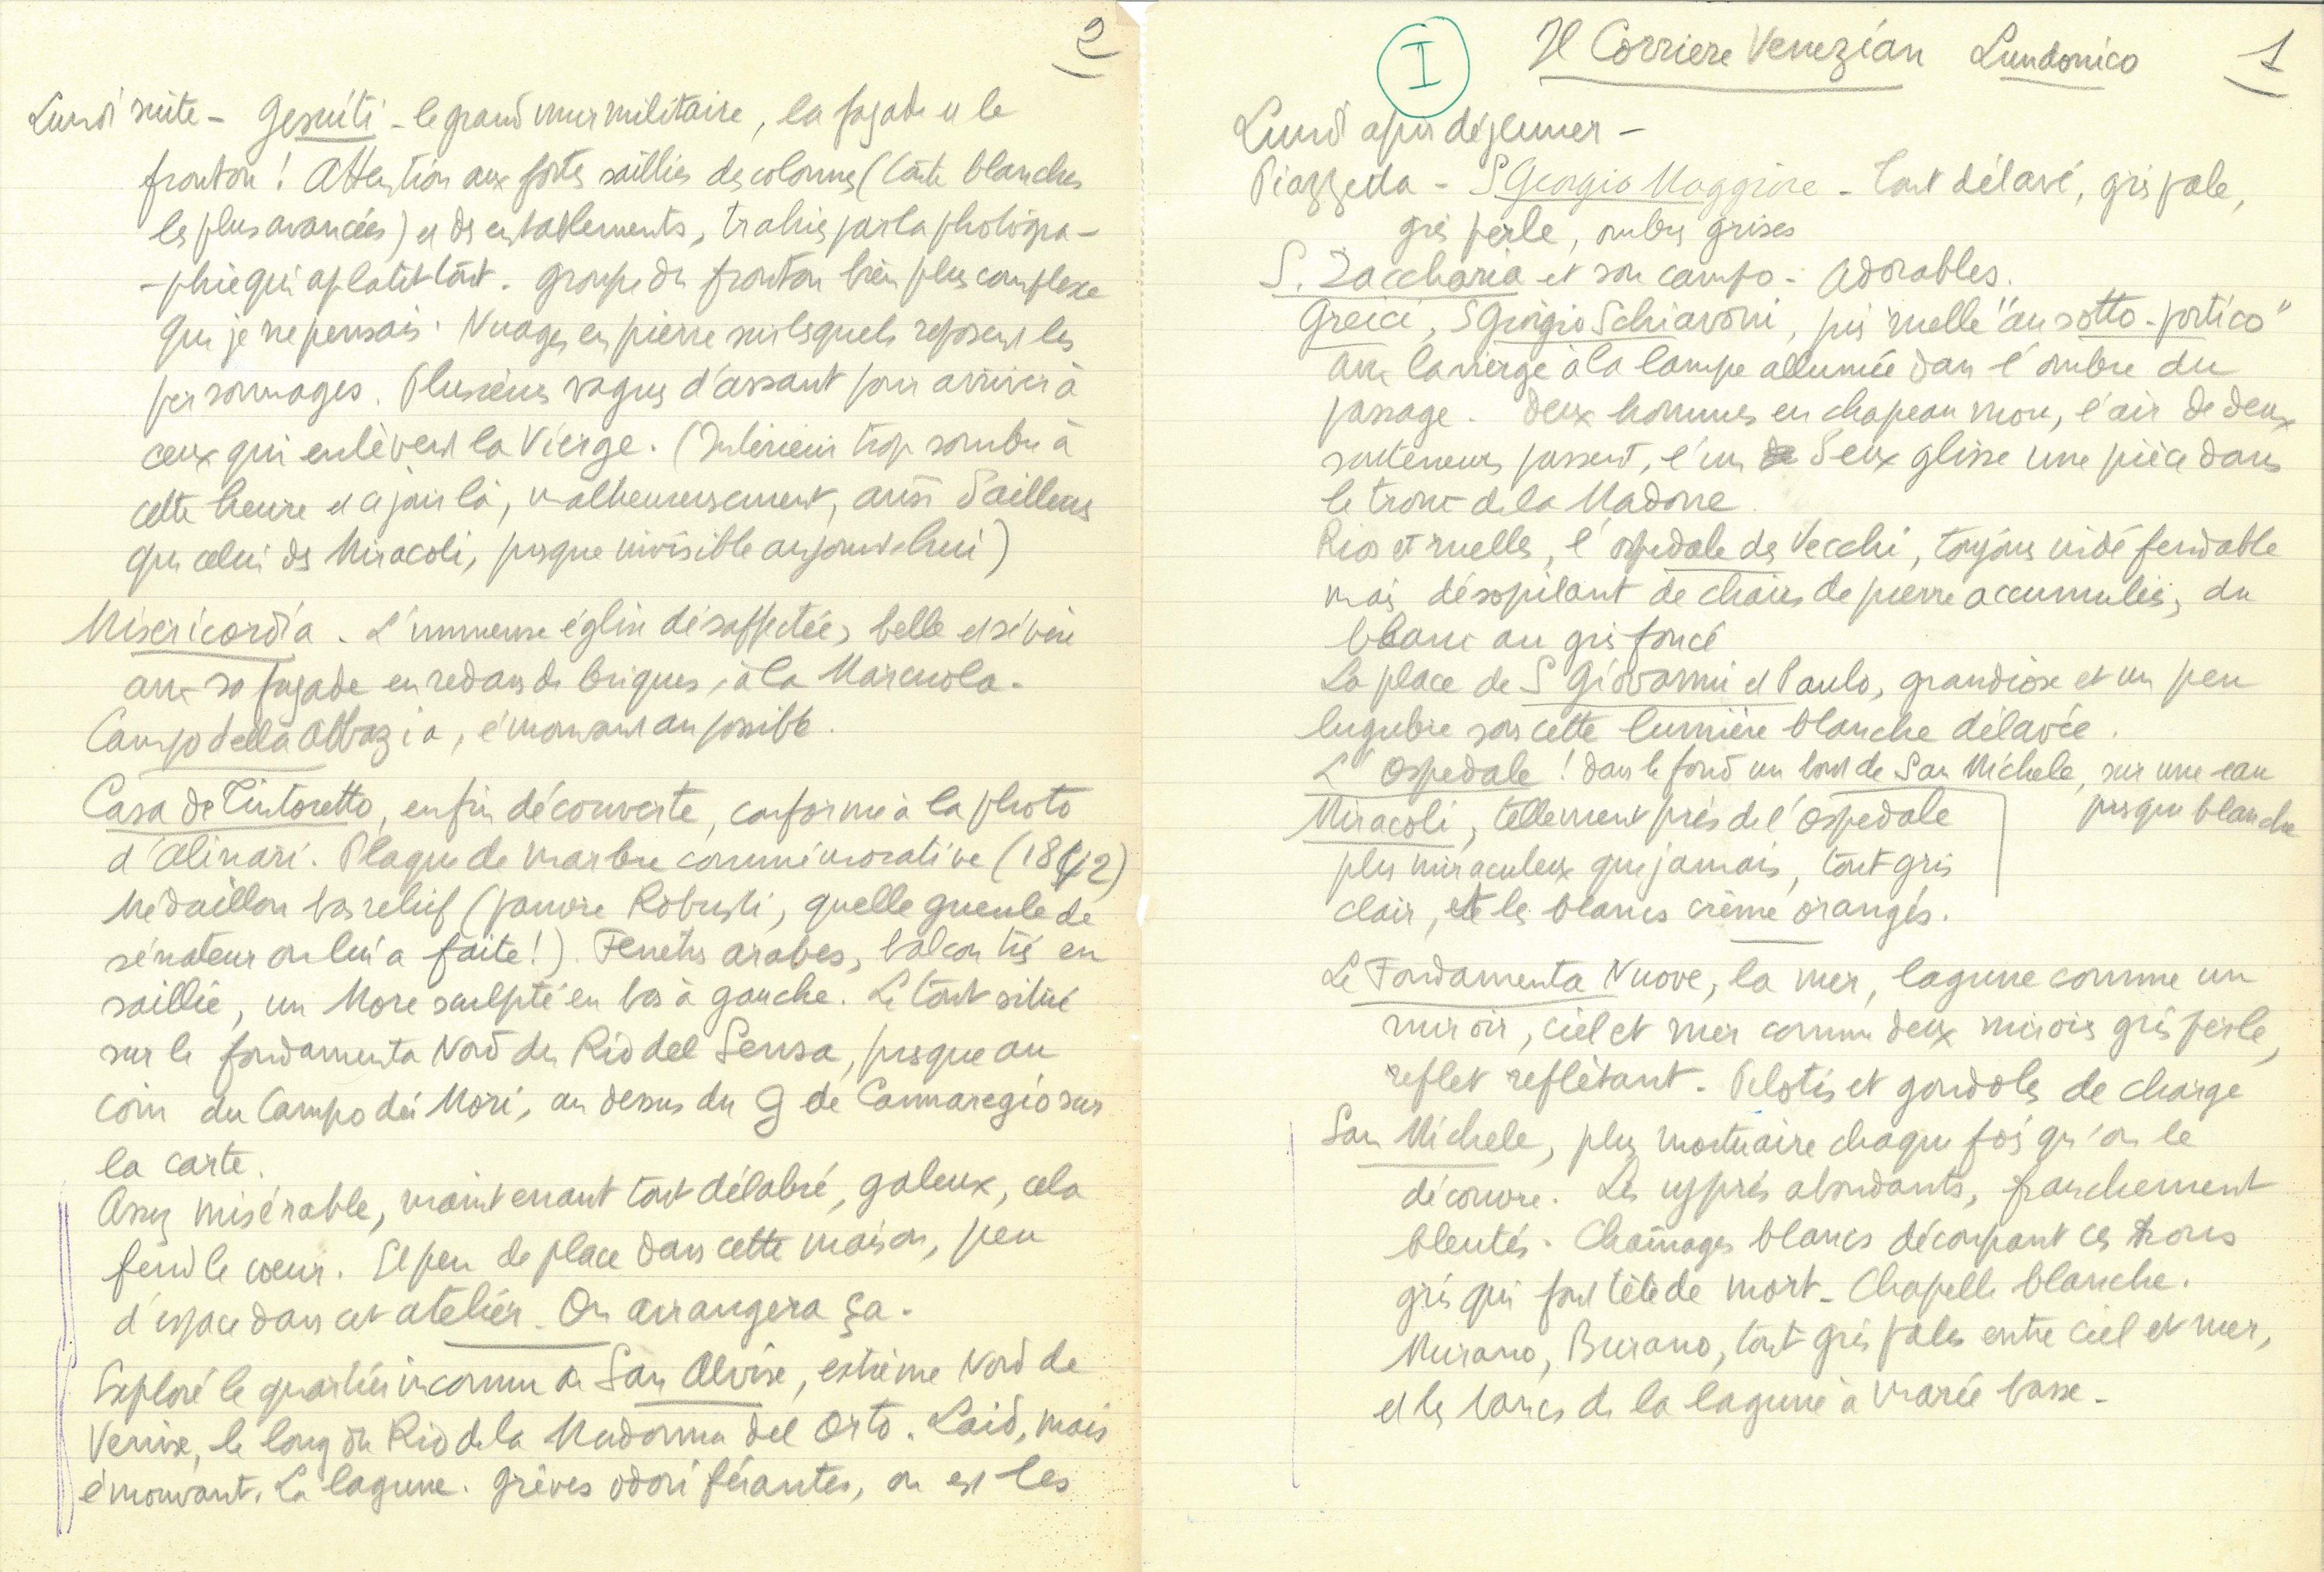 I
Il Corriere Venezian Lundonico 1
Lundi après déjeuner -
Piazzetta - S Georgio Maggiore - Tout délavé, gris pale,
gris perle, ombres grises
S. Zaccharia et son campo - Adorables.
Greici, S Giorgio Schiavoni, puis ruelle "au sotto-portico"
avec la vierge à la lampe allumée dans l'ombre du
passage. Deux hommes en chapeau mou, l'air de deux
souteneurs passent, l'un d'eux glisse une pièce dans
le tronc de la Madone
Rios et ruelles, l'ospedale des Vecchi, toujours indéfendable
mais désopilant de chairs de pierre accumulées, du
blanc au gris foncé
La place de S Giovanni et Paulo, grandiose et un peu
lugubre sous cette lumière blanche délavée.
L'Ospedale ! dans le fond un bout de San Michele, sur une eau
presque blanche
Miracoli, tellement près de l'ospedale
plus miraculeux que jamais, tout gris
clair, et les blancs crème orangés.
Le Fondamenta Nuove, la mer, lagune comme un
miroir, ciel et mer comme deux miroirs gris perle,
reflet reflètant. Pilotis et gondoles de charge
San Michele, plus mortuaire chaque fois qu'on le
découvre. Les cyprès abondants, franchement
bleutés. Chaînages blancs découpant ces trous
gris qui font tête de mort - Chapelle blanche.
Murano, Burano, tout gris pales entre ciel et mer,
et les bancs de la lagune à marée basse -
2
Lundi suite - Gesuiti - le grand mur militaire, la façade et le
fronton ! Attention aux fortes saillies des colonnes (toute blanches
les plus avancées) et des entablements, trahies par la photogra-
-phie qui aplatit tout. Groupe du fronton bien plus complexe
que je ne pensais. Nuages en pierre sur lesquels reposent les
personnages. Plusieurs vagues d'assaut pour arriver à
ceux qui enlèvent la Vierge. (Intérieur trop sombre à
cette heure et ce jour là, malheureusement, aussi d'ailleurs
que celui des Miracoli, presque invisible aujourd'hui)
Misericordia. L'immense église désaffectée, belle et sévère
avec sa façade en redans de briques, à la Marcuola.
Campo della Abbazia, émouvant au possible.
Casa de Tintoretto, enfin découverte, conforme à la photo
d'Alinari. Plaque de marbre commémorative (1842)
Médaillon bas relief (pauvre Robusti, quelle gueule de
sénateur on lui a faite!). Fenetres arabes, balcon très en
saillie, un More sculpté en bas à gauche. Le tout situé
sur le fondamenta Nord du Rio del Sensa, presque au
coin du Campo dei Mori, au dessus du g de Cannaregio sur
la carte.
Assez misérable, maintenant tout délabré, galeux, cela
fend le coeur. Si peu de place dans cette maison, peu
d'espace dans cet atelier. On arrangera ça.
Exploré le quartier inconnu de San Alvise, extrème Nord de
Venise, le long du Rio de la Madonna del Orto. Laid, mais
émouvant. La lagune. Grèves odoriférantes, on est les